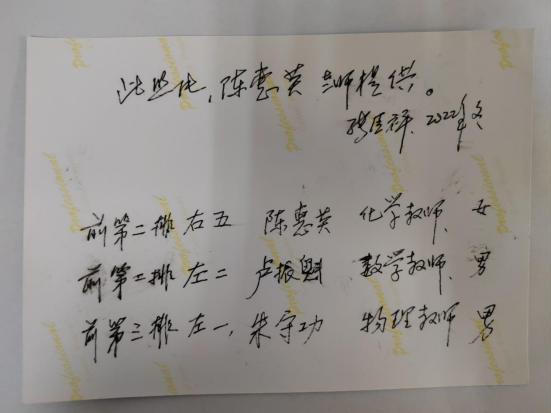 此照片,陈惠英老师提供。
2022年冬
前第二排右五 陈惠英 化学教师、女
前第二排左二 卢振魁 数学教师、男
前第三排左一,朱守功 物理教师 男